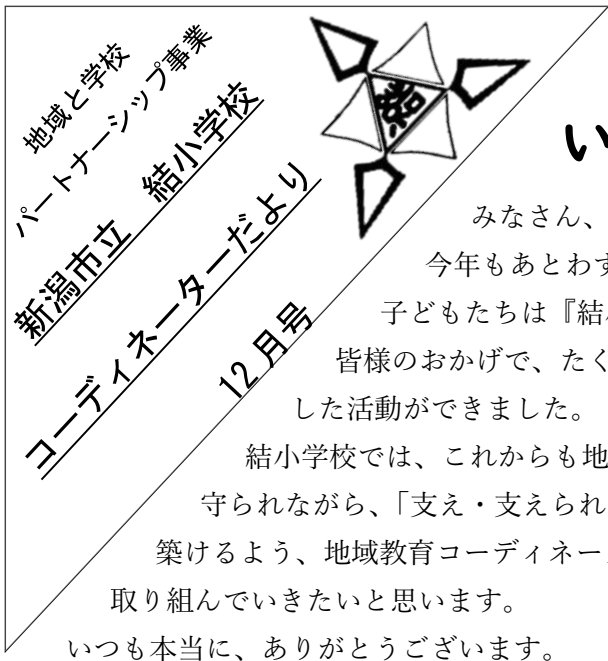 地域と学校
パートナーシップ事業
新潟市立　結小学校
コーディネーターだより
12月号
結
い
みなさん、
今年もあとわず
子どもたちは『結
皆様のおかげで、たく
した活動ができました。
結小学校では、これからも地
守られながら、「支え・支えられ
築けるよう、地域教育コーディネー
取り組んでいきたいと思います。
いつも本当に、ありがとうございます。